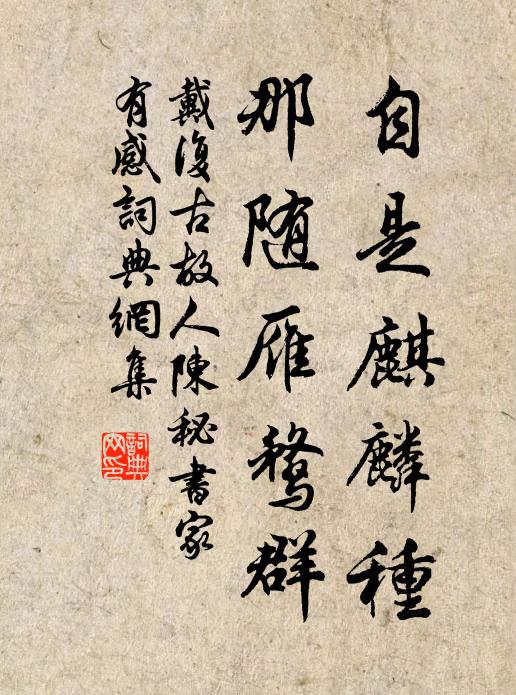 自是麒麟種
那随雁鶩群
戴復古故人陳秘書家
有感詞典網集
詞典網印